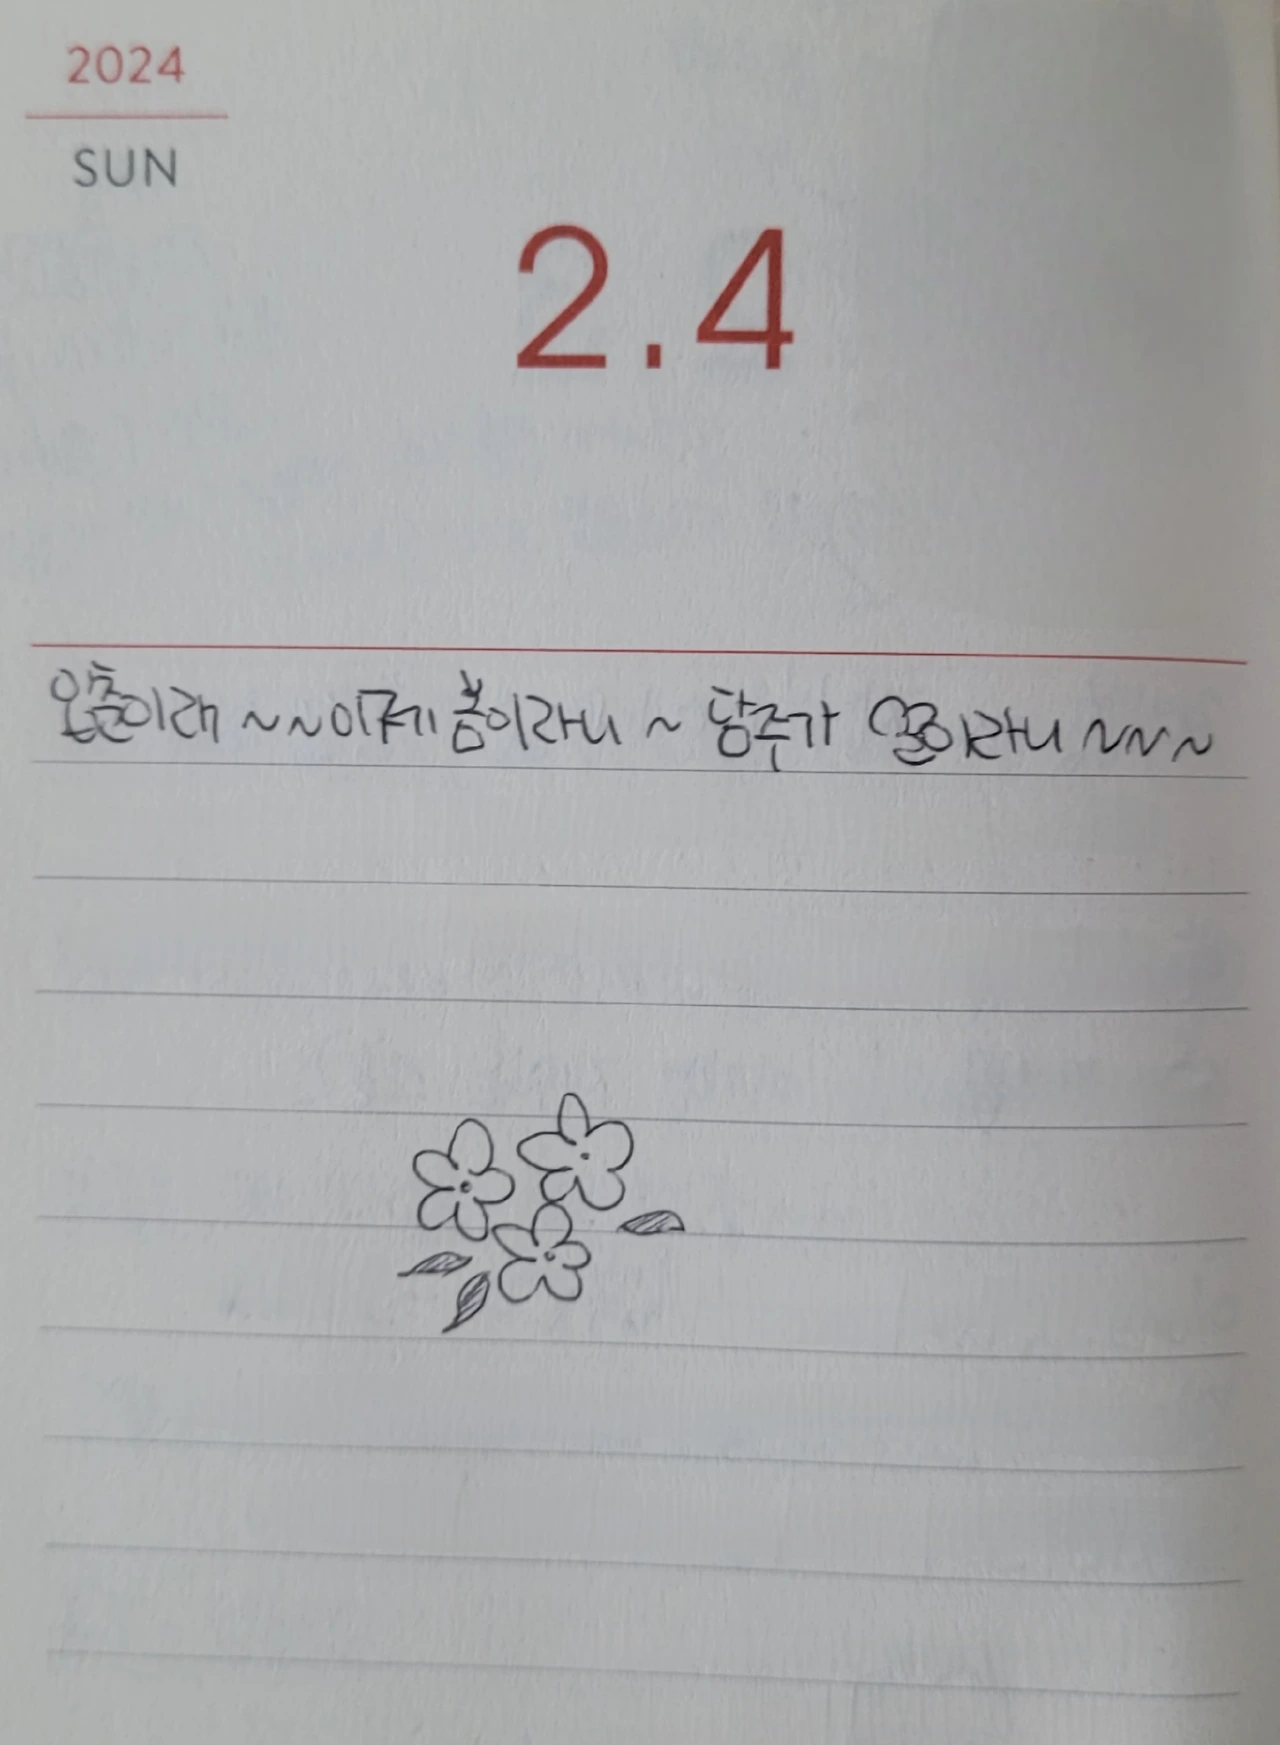 2024
SUN
2.4
입춘이래 ~~이제 봄이라니 ~ 담주가 설이라니 ~~~